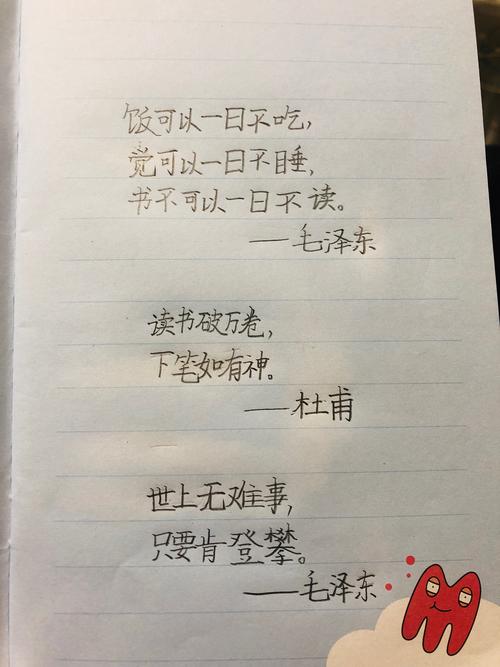 饭可以一日不吃，
觉可以一日不睡，
书不可以一日不读。
——毛泽东
读书破万卷，
下笔如有神。
——杜甫
世上无难事，
只要肯登攀。
——毛泽东